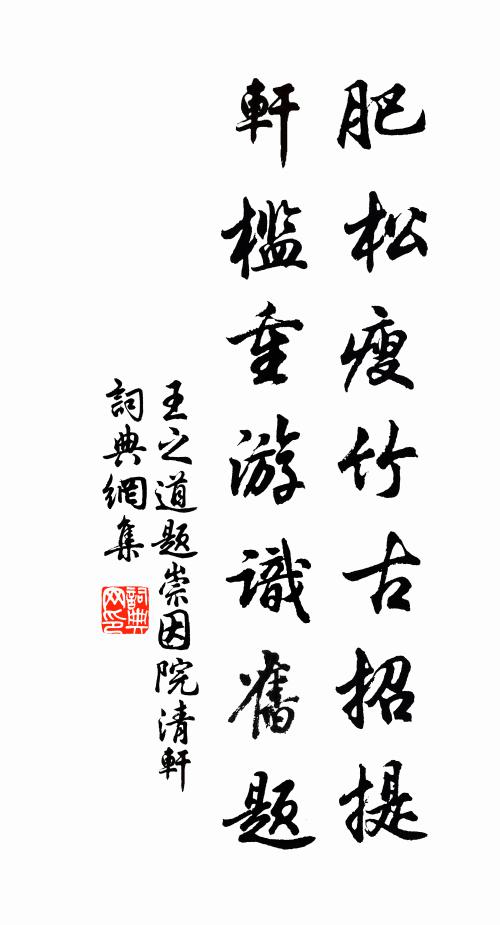 肥松瘦竹古招提
軒檻重游識舊题
王之道题崇因院清軒
詞典網集
詞典网印